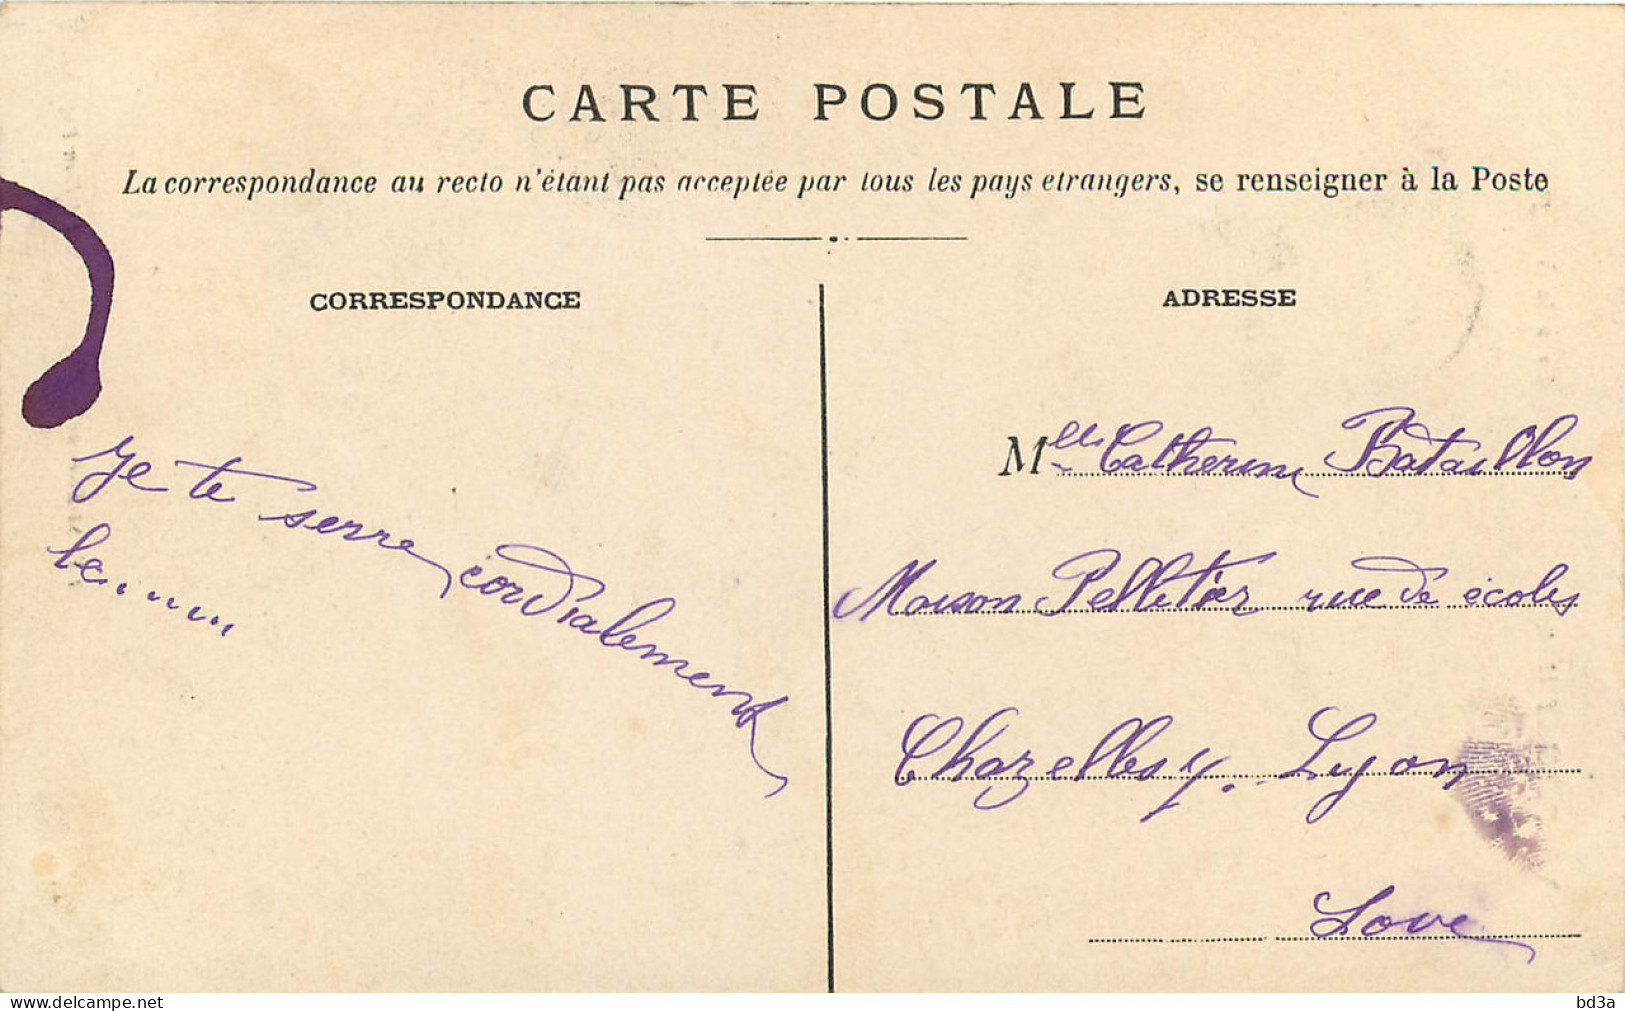 CARTE POSTALE
La correspondance au recto n'étant pas acceptée par tous les pays étrangers, se renseigner à la Poste
CORRESPONDANCE
Je te serre cordialement
le......
ADRESSE
Mlle Catherine Bataillon
Maison Pelletier rue de écoles
Chazelles y. Lyon
Love
www.delcampe.net
bd3a